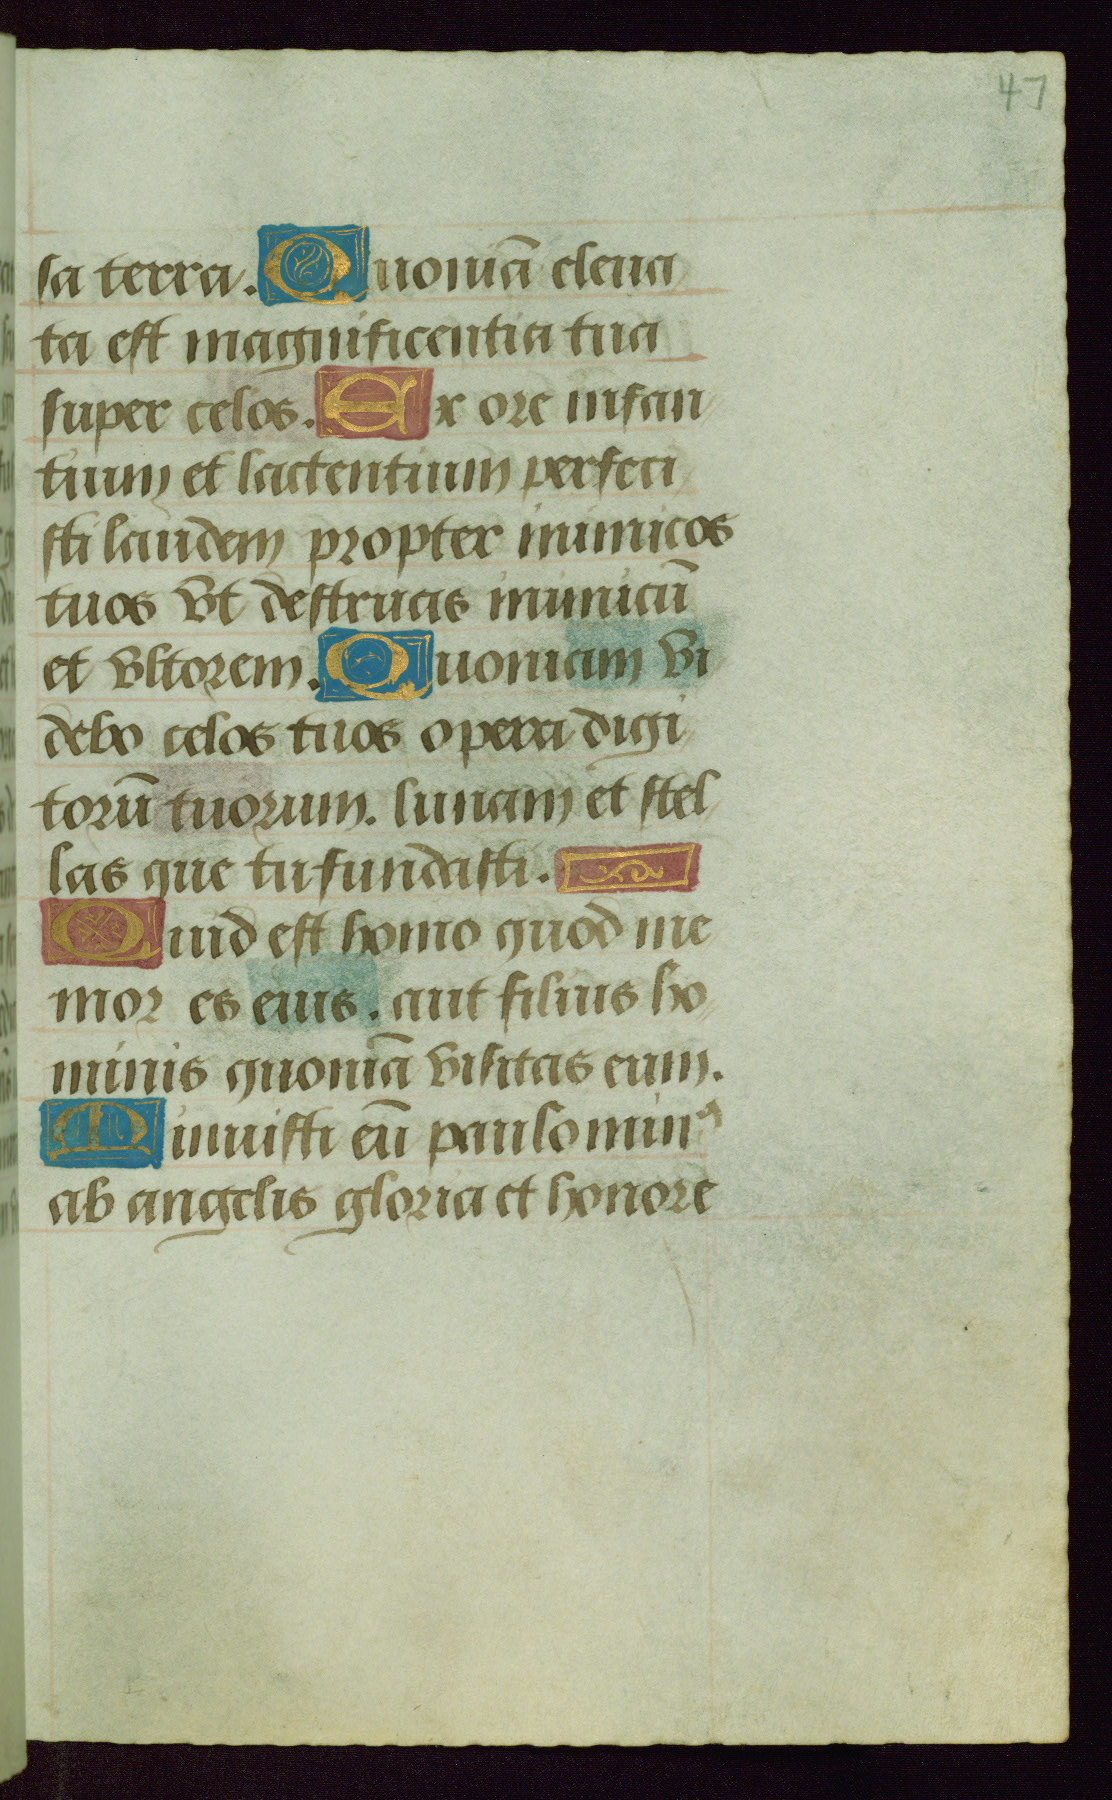 47
sa terra. Quoniā eleua
ta est magnificentia tua
super celos. Ex ore infan
tium et lactentium perfeci
sti laudem propter inimicos
tuos vt destruas inimicū
et vltorem. Quoniam vi
debo celos tuos opera digi
torū tuorum. lunam et stel
las que tu fundasti.
Quid est homo quod me
mor es eius. aut filius ho
minis quoniā visitas eum.
Minuisti eū paulo minꝰ
ab angelis gloria et honore